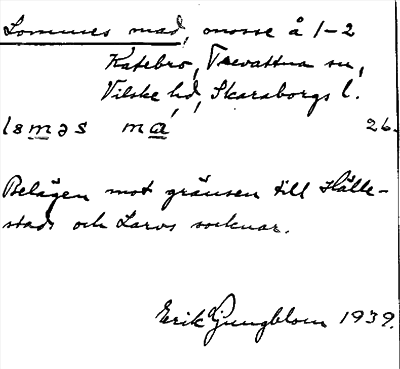 Lommes mad, mosse å 1-2
Katebro, Trevattna sn,
Vilske hd, Skaraborgs l.
loməs má 26.
Belägen mot gränsen till Hälle-
stads och Larvs socknar.
Erik Ljungblom 1939.